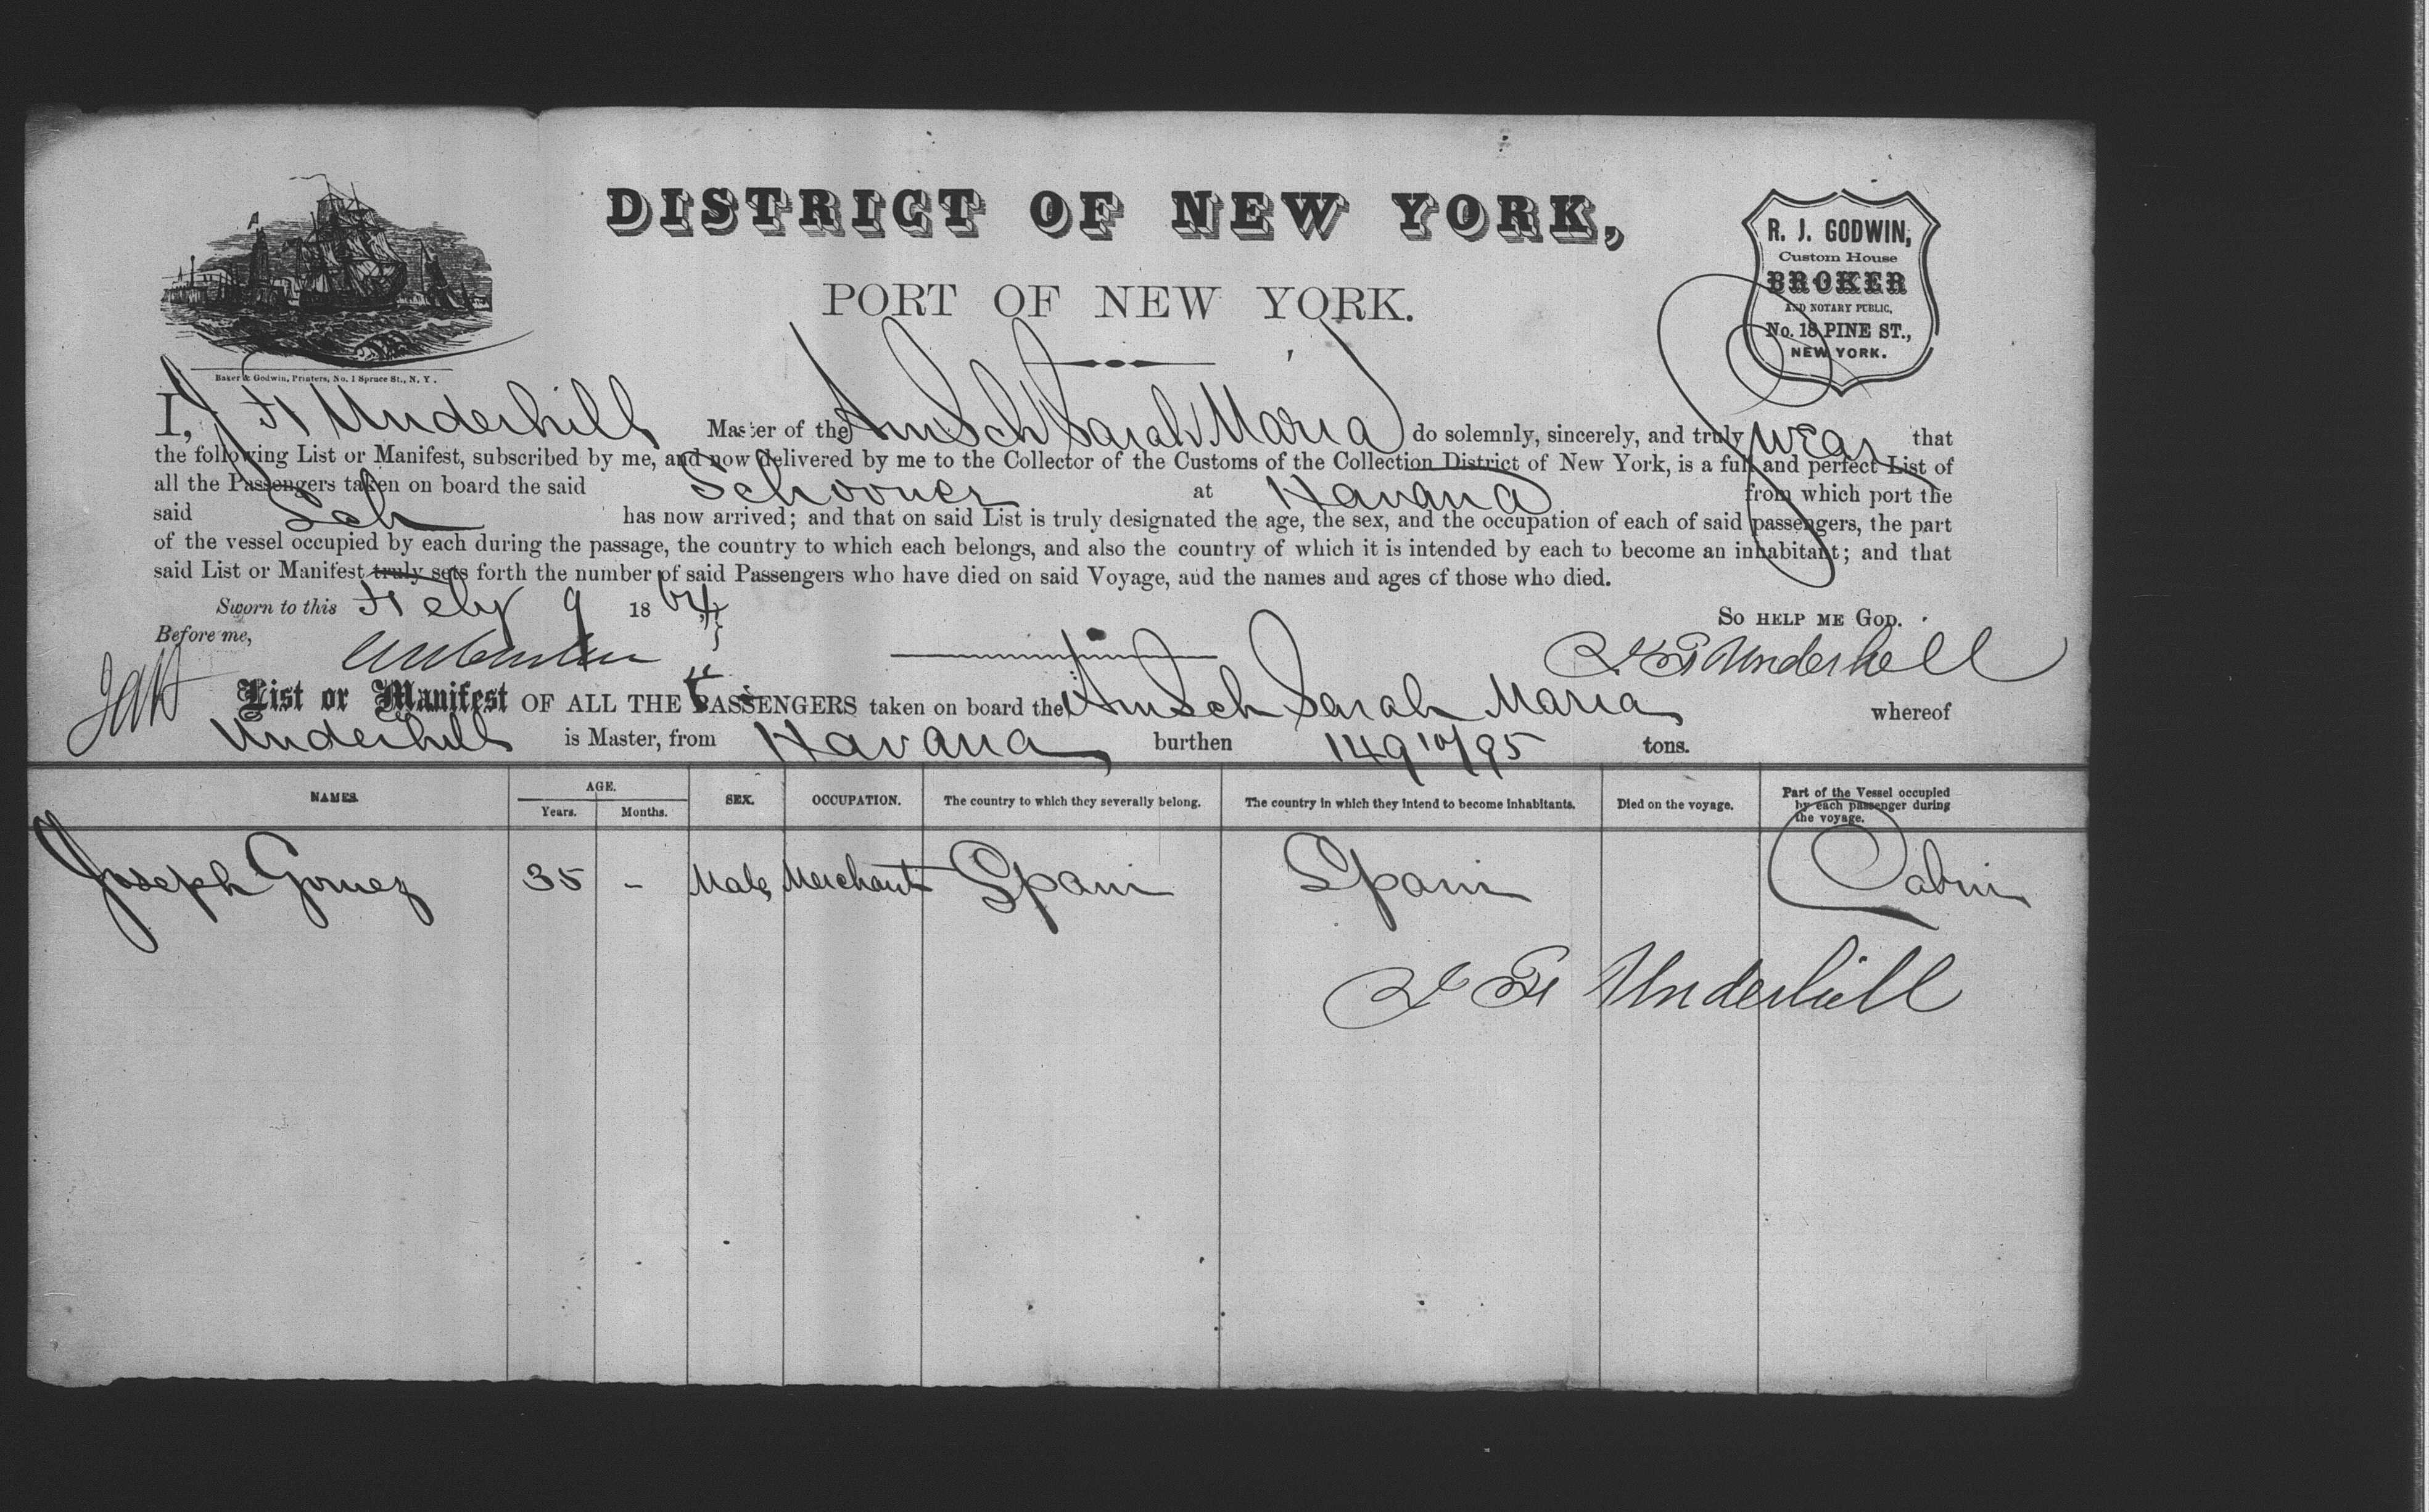 DISTRICT OF NEW YORK,
PORT OF NEW YORK.
R. J. GODWIN,
Custom House
BROKER
AND NOTARY PUBLIC,
No. 18 PINE ST.,
NEW YORK.
Baker & Godwin, Printers, No. 1 Spruce St., N. Y.
I, J F Underhill Master of the Am Sch Sarah Maria do solemnly, sincerely, and truly swear that
the following List or Manifest, subscribed by me, and now delivered by me to the Collector of the Customs of the Collection District of New York, is a full and perfect List of
all the Passengers taken on board the said Schooner at Havana from which port the
said Sch has now arrived; and that on said List is truly designated the age, the sex, and the occupation of each of said passengers, the part
of the vessel occupied by each during the passage, the country to which each belongs, and also the country of which it is intended by each to become an inhabitant; and that
said List or Manifest truly sets forth the number of said Passengers who have died on said Voyage, and the names and ages of those who died.
Sworn to this Feby 9 1864
So HELP ME GOD.
Before me,
J F Underhill
List or Manifest OF ALL THE PASSENGERS taken on board the Am Sch Sarah Maria whereof
Underhill is Master, from Havana burthen 149 10/95 tons.
NAMES. AGE. SEX. OCCUPATION. The country to which they severally belong. The country in which they intend to become inhabitants. Died on the voyage. Part of the Vessel occupied by each passenger during the voyage.
Years. Months.
Joseph Gomez 35 - Male Merchant Spain Spain Cabin
J F Underhill